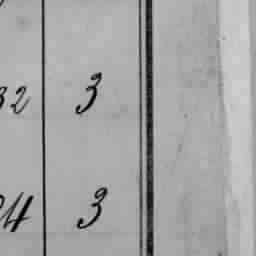 32 3
24 3